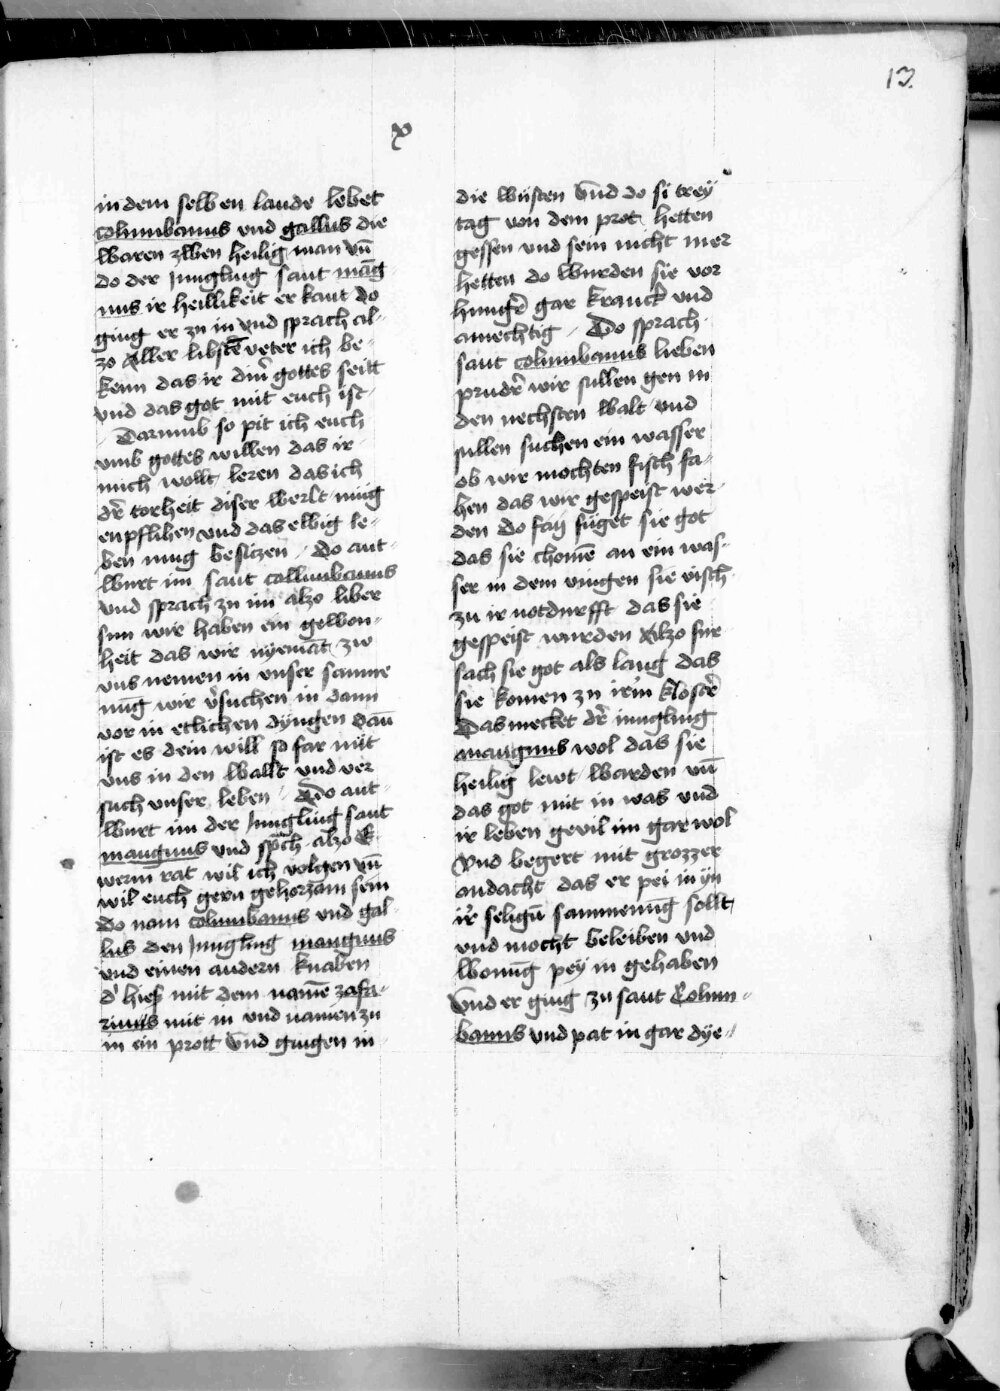 13.
x
in dem selben lande lebet
columbanus vnd gallus die
waren zwen heilig man vn̄
do der Jungling sant māg
nus ir heillikeit er kant do
ging er zu in vnd sprach al-
zo Aller libstē veter ich be-
kenn das ir din̄ gottes seitt
vnd das got mit euch ist
Dorumb so pit ich euch
vmb gottes willen das ir
mich wollt leren das ich
dr̄ torheit diser werlt müg
enpflihen vnd das ewig le-
ben mug besitzen Do ant-
wurt im sant collumbanus
vnd sprach zu im alzo liber
sun wir haben ein gewon-
heit das wir nyemāt zw
vns nemen in vnser samne
nūg wir v̓suchen in dann
vor in etlichen dyngen Dan̄
ist es dein will so far mit
vns in den wallt vnd ver
such vnser leben Do ant-
wurt im der Jungling sant
mangnus vnd sp̄ch alzo E
werm̄ rat wil ich volgen vn̄
wil euch gern gehorzam sein
Do nam columbanus vnd gal-
lus den Jungling mangnus
vnd einen andern knaben
d̓ hieß mit dem namē zafa-
rinus mit in vnd namen zu
in ein prott Vnd gingen in
die wüsten Vnd do si trey
tag von dem prot hetten
gessen vnd sein nicht mer
hetten do wurden sie vor
hungr̄ gar kranck vnd
amechtig Do sprach
sant columbanus lieben
prudr̄ wir sullen gen in
den nechsten walt vnd
sullen suchen ein wasser
ob wir mochten fisch fa-
hen das wir gespeist wer-
den do fan füget sie got
das sie chomē an ein was-
ser in dem vingen sie visch
zu ir notdurfft das sie
gespeist wurden Alzo fur
sach sie got als lang das
sie komen zu irm̄ klostr̄
Das mecket dr̄ iungling
mangnus wol das sie
heilig lewt warden vn̄
das got mit in was vnd
ir leben gevil im gar wol
Vnd begert mit grozzer
andacht das er pei in yn
ir̓ selign̄ sammenūg sollt
vnd mocht beleiben vnd
wonūg pey in gehaben
Vnd er ging zu sant Colum-
banus vnd pat in gar dye-